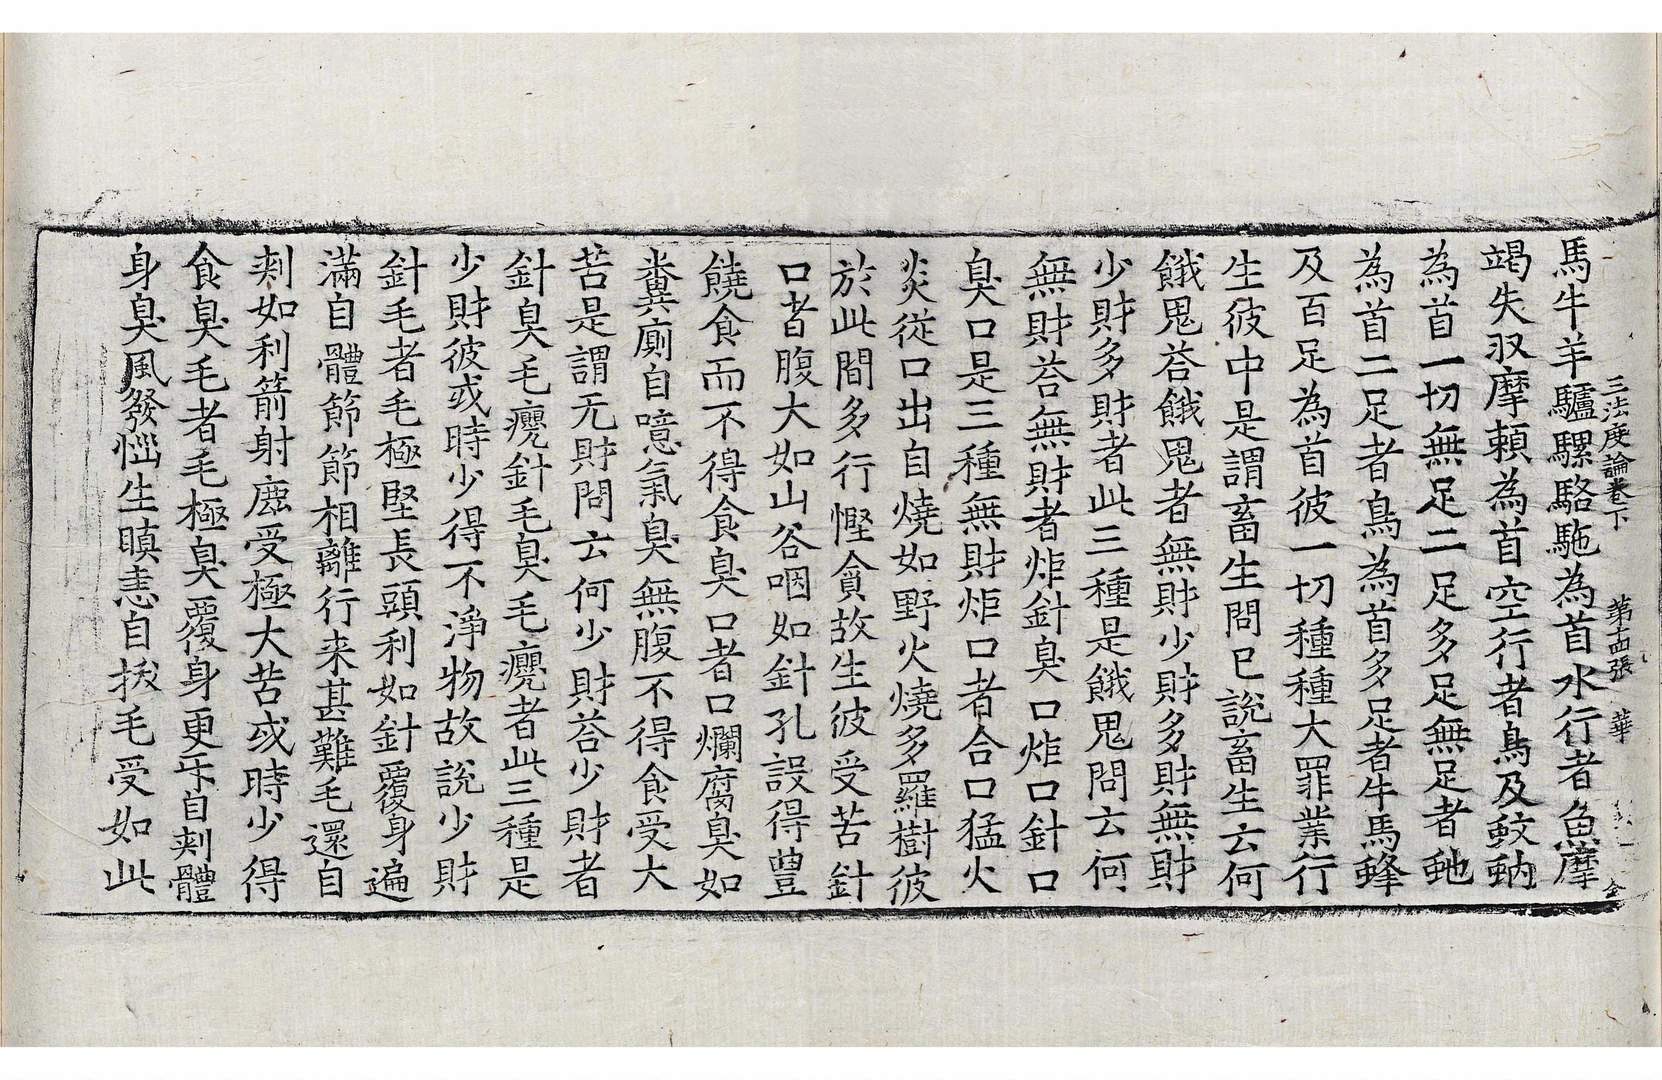 三法度論卷下　第十四張　華
馬牛羊驢騾駱駞為首水行者魚摩
竭失㕛摩頼為首空行者鳥及蚊蚋
為首一切無足二足多足無足者虵
為首二足者鳥為首多足者牛馬蜂
及百足為首彼一切種種大罪業行
生彼中是謂畜生問已說畜生云何
餓鬼荅餓鬼者無財少財多財無財
少財多財者此三種是餓鬼問云何
無財荅無財者炬針臭口炬口針口
臭口是三種無財炬口者合口猛火
炎從口出自燒如野火燒多羅樹彼
於此間多行慳貪故生彼受苦針
口者腹大如山谷咽如針孔設得豊
饒食而不得食臭口者口爛腐臭如
糞廁自噫氣臭無腹不得食受大
苦是謂无財問云何少財荅少財者
針臭毛癭針毛臭毛癭者此三種是
少財彼或時少得不淨物故說少財
針毛者毛極堅長頭利如針覆身遍
滿自體節節相離行来甚難毛還自
刾如利箭射鹿受極大苦或時少得
食臭毛者毛極臭覆身更互自刾體
身臭風發惱生瞋恚自拔毛受如此